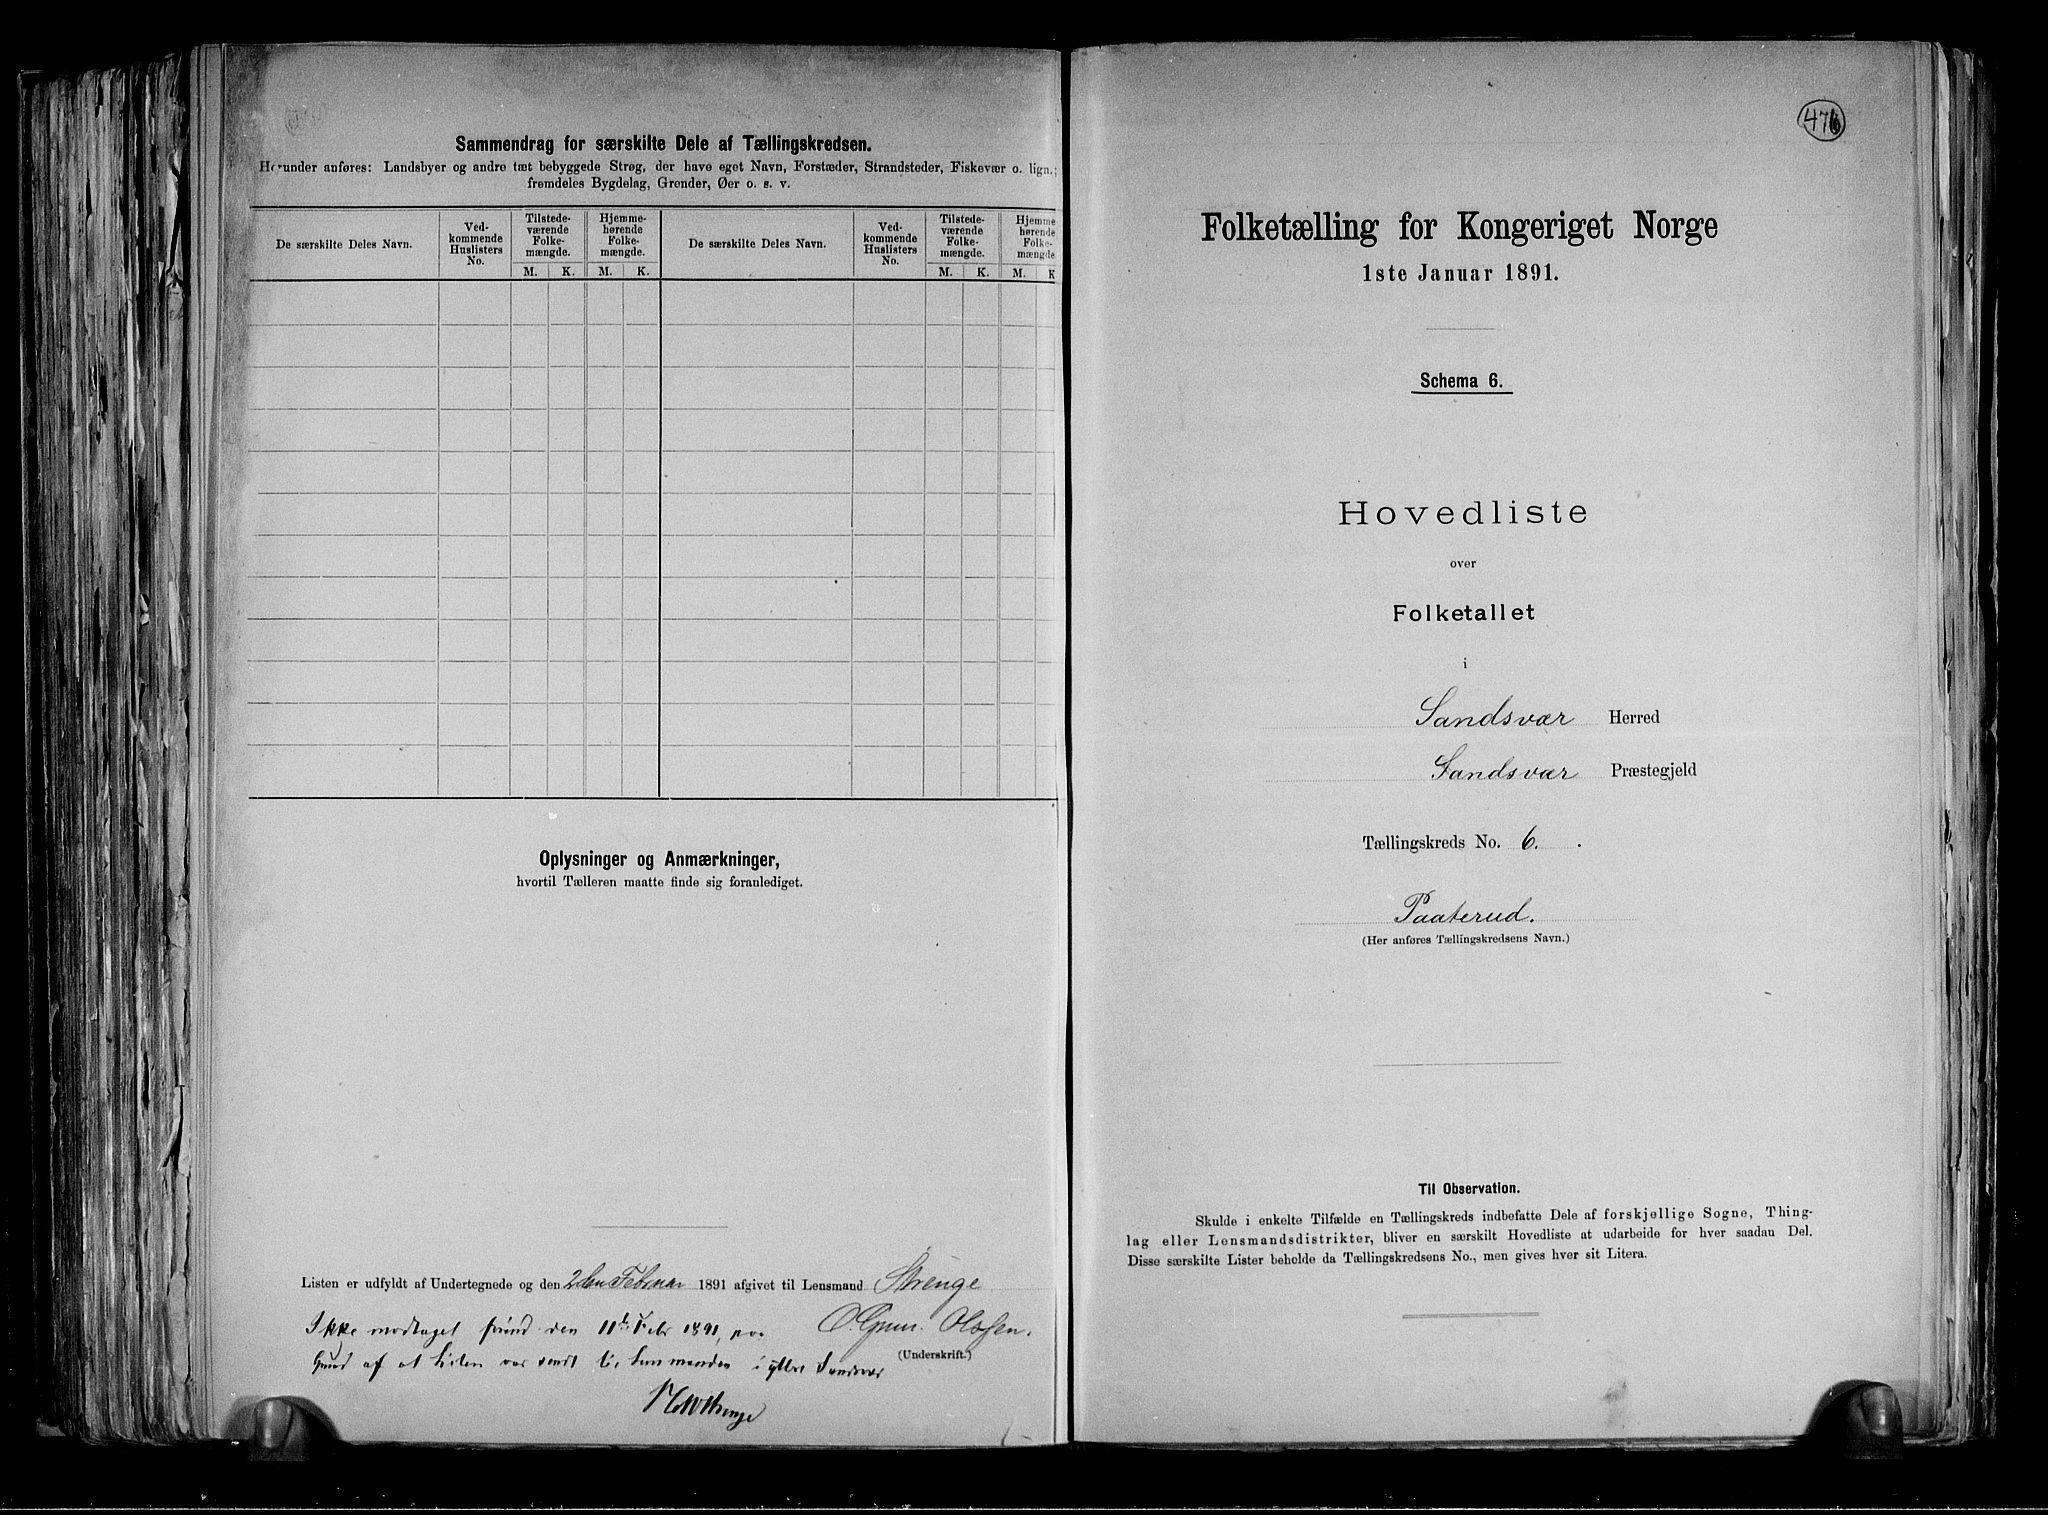 Sammendrag for særskilte Dele af Tællingskredsen.
Herunder anføres: Landsbyer og andre tæt bebyggede Strøg, der have eget Navn, Forstæder, Strandsteder, Fiskevær o. lign.;
fremdeles Bygdelag, Grender, Øer o. s. v.
De særskilte Deles Navn.
Ved-
kommende
Huslisters
No.
Tilstede-
værende
Folke-
mængde.
M. K.
Hjemme-
hørende
Folke-
mængde.
M. K.
De særskilte Deles Navn.
Ved-
kommende
Huslisters
No.
Tilstede-
værende
Folke-
mængde.
M. K.
Hjemme
hørende
Folke-
mængde
M. K
Oplysninger og Anmærkninger,
hvortil Tælleren maatte finde sig foranlediget.
Listen er udfyldt af Undertegnede og den 2den Februar 1891 afgivet til Lensmand Strenge
O. Gunn. Olsen.
(Underskrift.)
Ikke modtaget førend den 11te Febr 1891, paa
Grund af at Listen var sendt til Lensmanden i ytre Sandsvær
476
Folketælling for Kongeriget Norge
1ste Januar 1891.
Schema 6.
Hovedliste
over
Folketallet
i
Sandsvær Herred
Sandsvær Præstegjeld
Tællingskreds No. 6.
Paaterud.
(Her anføres Tællingskredsens Navn.)
Til Observation.
Skulde i enkelte Tilfælde en Tællingskreds indbefatte Dele af forskjellige Sogne, Thing-
lag eller Lensmandsdistrikter, bliver en særskilt Hovedliste at udarbeide for hver saadan Del.
Disse særskilte Lister beholde da Tællingskredsens No., men gives hver sit Litera.